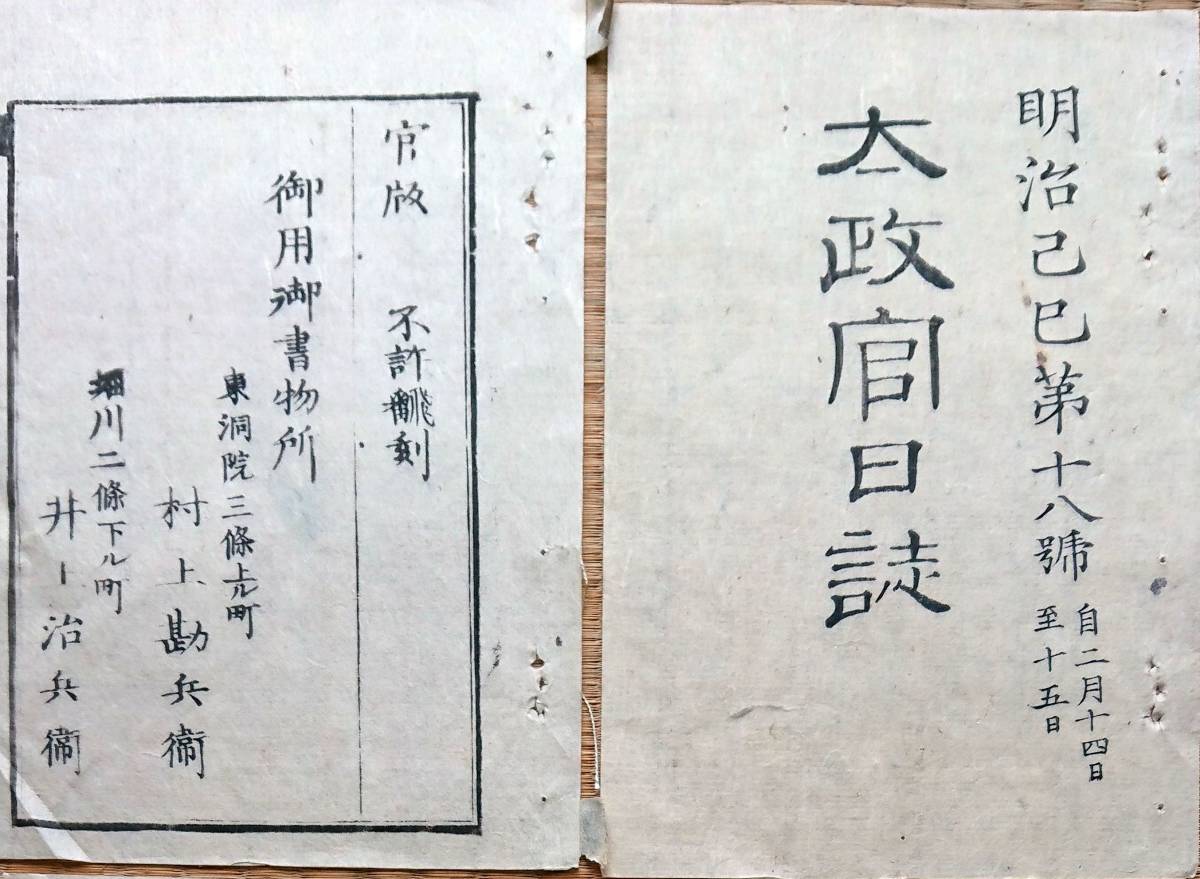 明治己巳第十八號
自二月十四日
至十五日
太政官日誌
官版 不許翻刻
御用御書物所
東洞院三條上ル町
村上勘兵衞
堀川二條下ル町
井上治兵衞